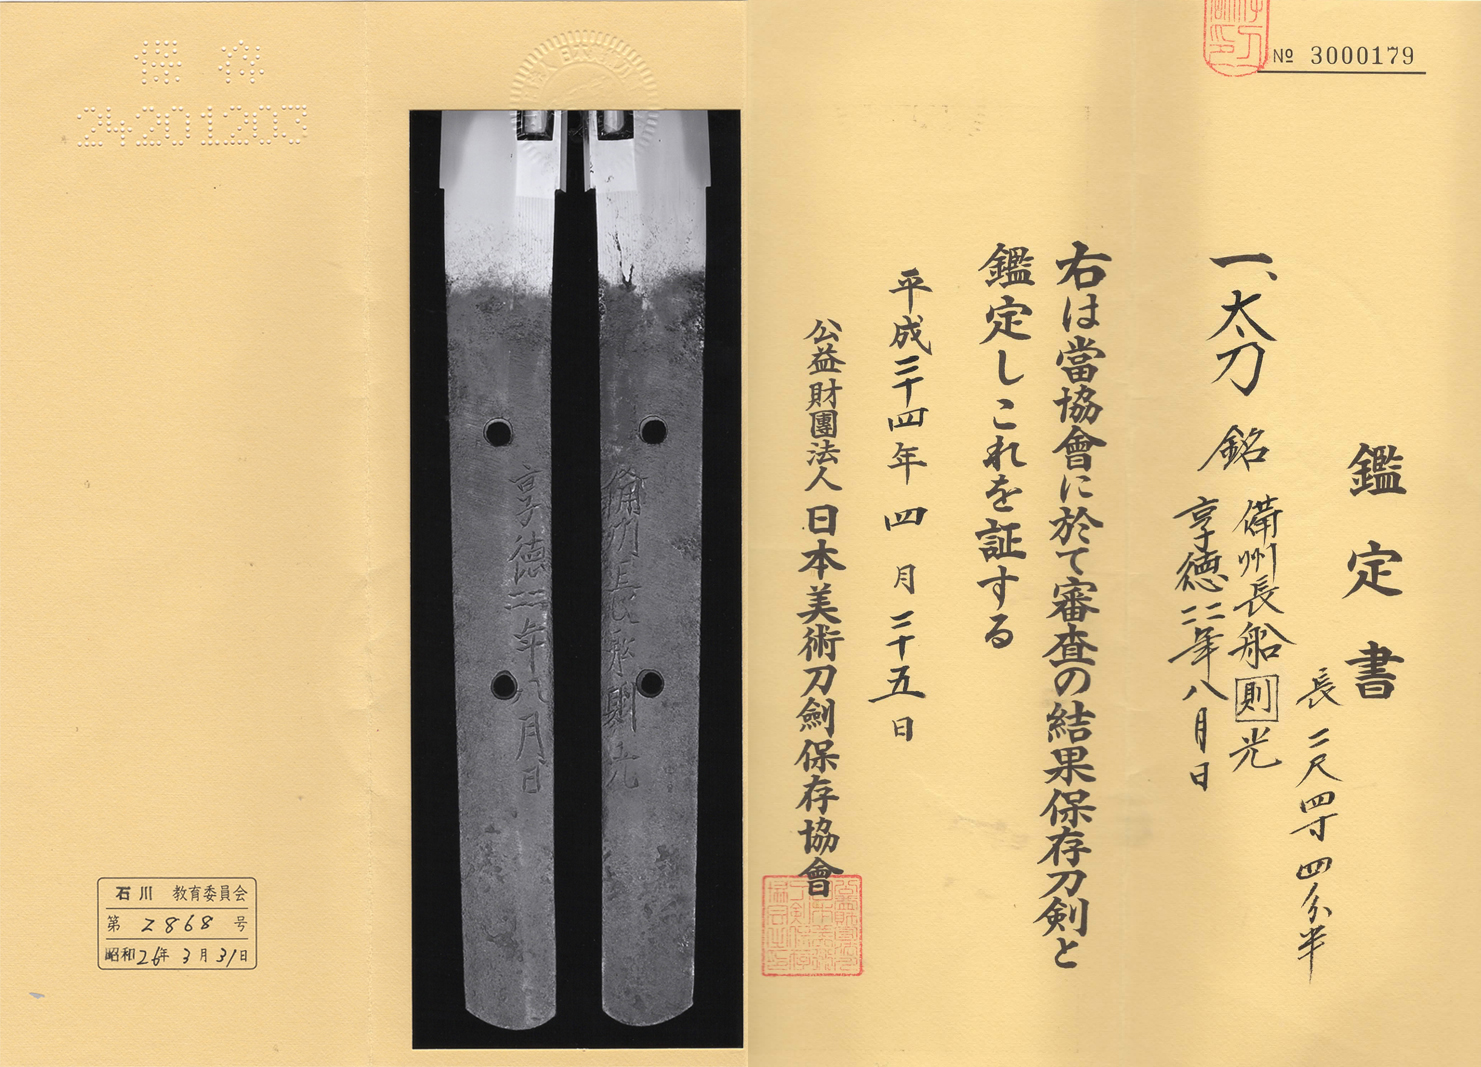 № 3000179
鑑定書
一、太刀 銘 備州長船則光
享德二二年八月日
長 二尺四寸四分半
右は當協會に於て審査の結果保存刀剣と
鑑定しこれを証する
平成二十四年 四 月 二十五日
公益財團法人 日本美術刀劍保存協會
備州長船則光
享徳二二年八月日
保存
24201203
石川 教育委員会
第 2868 号
昭和26年 3月31日